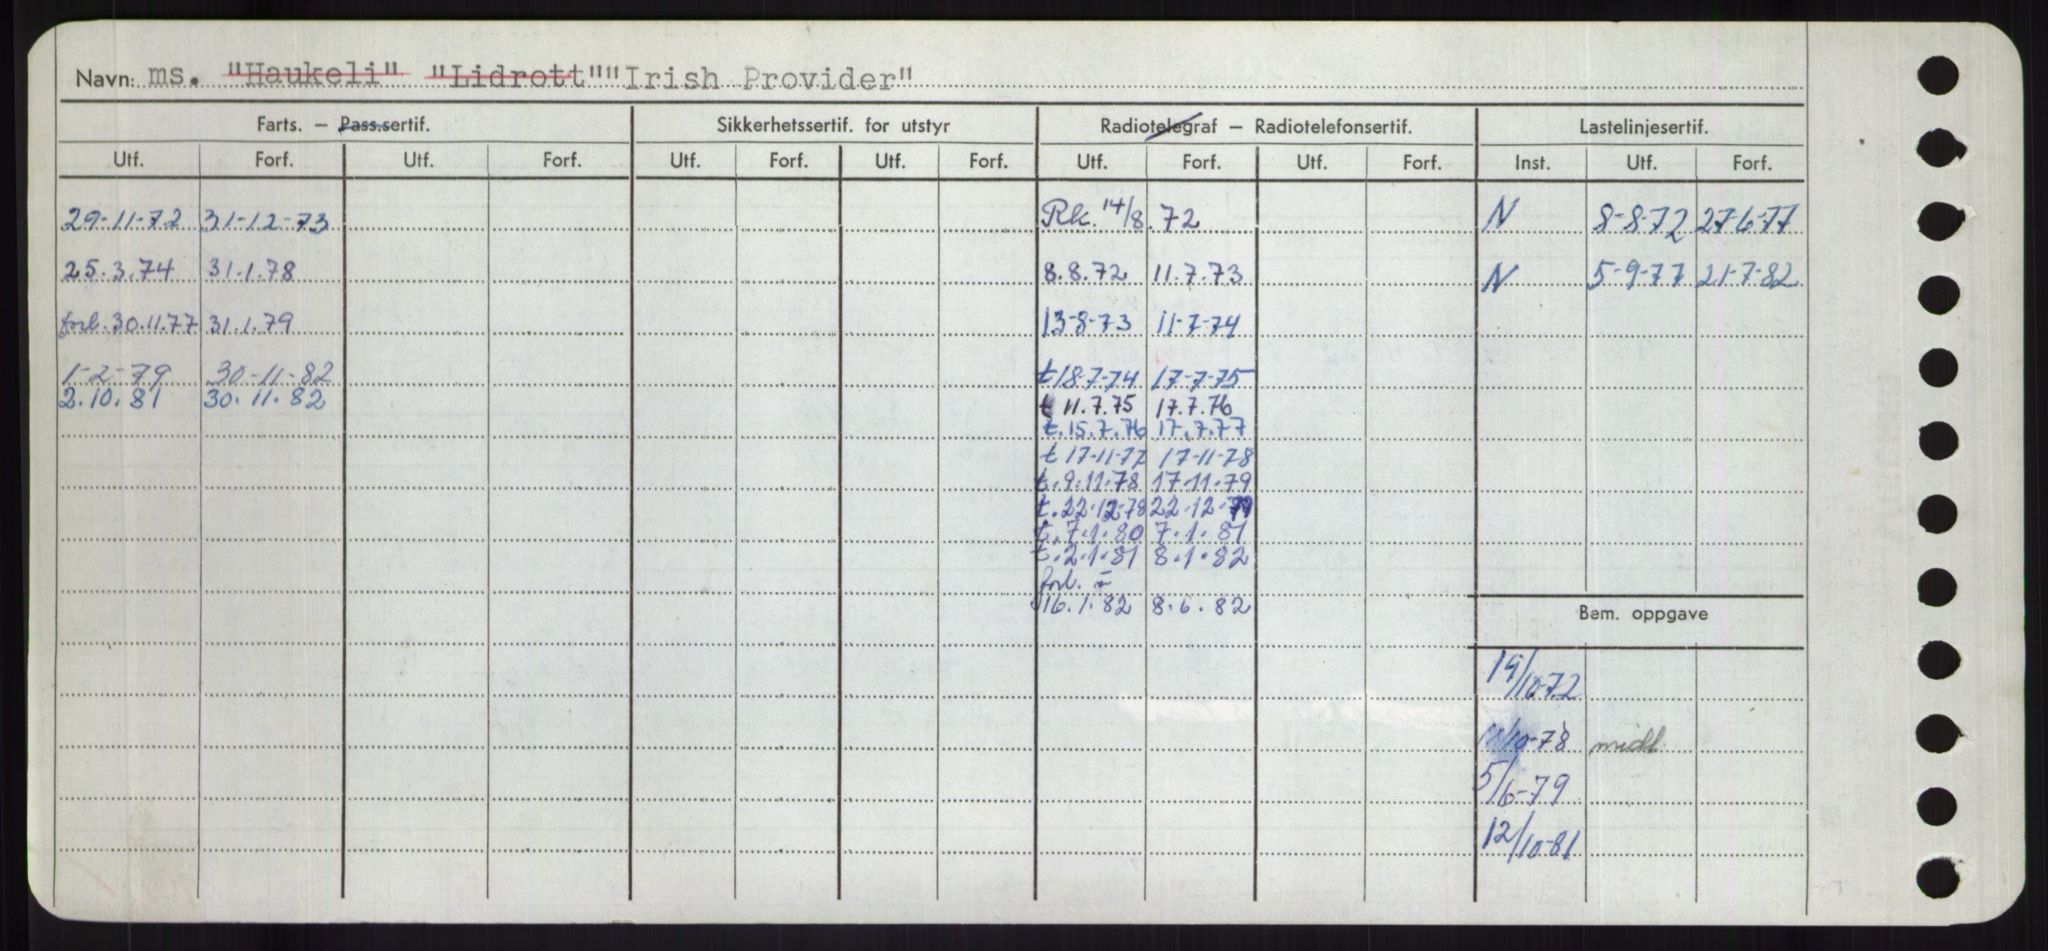 Navn: ms. "Haukeli" "Lidrott" "Irish Provider"
Farts. — Pass.sertif. Sikkerhetssertif. for utstyr Radiotelegraf — Radiotelefonsertif. Lastelinjesertif.
Utf. Forf. Utf. Forf. Utf. Forf. Utf. Forf. Utf. Forf. Utf. Forf. Inst. Utf. Forf.
29-11-72 31-12-73 Rk. 14/8.72 N 8-8-72 27-6-77
25.3.74 31.1.78 8.8.72 11.7.73 N 5-9-77 21-7-82
forl. 30.11.77 31.1.79 13-8-73 11-7-74
1-2-79 30-11-82 t 18-7-74 17-7-75
2.10.81 30.11.82 t 11.7.75 17.7.76
t.15.7.76 17.7.77
t 17-11-77 17-11-78
t.9.11.78 17.11.79
t.22.12-78 22-12-79
t.7.1.80 7.1.81
t.2.1.81 8.1.82
forl.
16.1.82 8.6.82
Bem. oppgave
19/10-72
10-78 midl.
5/6-79
12/10-81